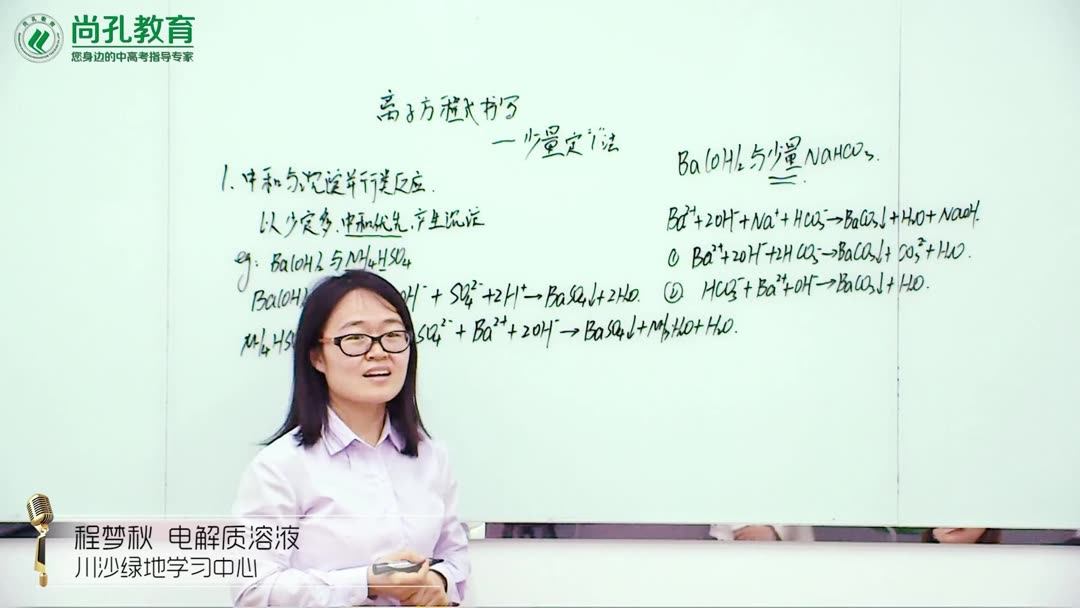 尚孔教育
您身边的中高考指导专家
离子方程式书写
—少量定"1"法
1.中和与沉淀并行类反应.
以少定多,中和优先,产生沉淀
eg: Ba(OH)₂与NH₄HSO₄
Ba(OH) OH⁻ + SO₄²⁻ + 2H⁺→BaSO₄↓+2H₂O.
NH₄HSO SO₄²⁻ + Ba²⁺ + 2OH⁻→BaSO₄↓+NH₃·H₂O+H₂O.
Ba(OH)₂与少量NaHCO₃.
Ba²⁺+2OH⁻+Na⁺+HCO₃⁻→BaCO₃↓+H₂O+NaOH.
① Ba²⁺+2OH⁻+2HCO₃⁻→BaCO₃↓+CO₃²⁻+H₂O.
② HCO₃⁻+Ba²⁺+OH⁻→BaCO₃↓+H₂O.
程梦秋 电解质溶液
川沙绿地学习中心